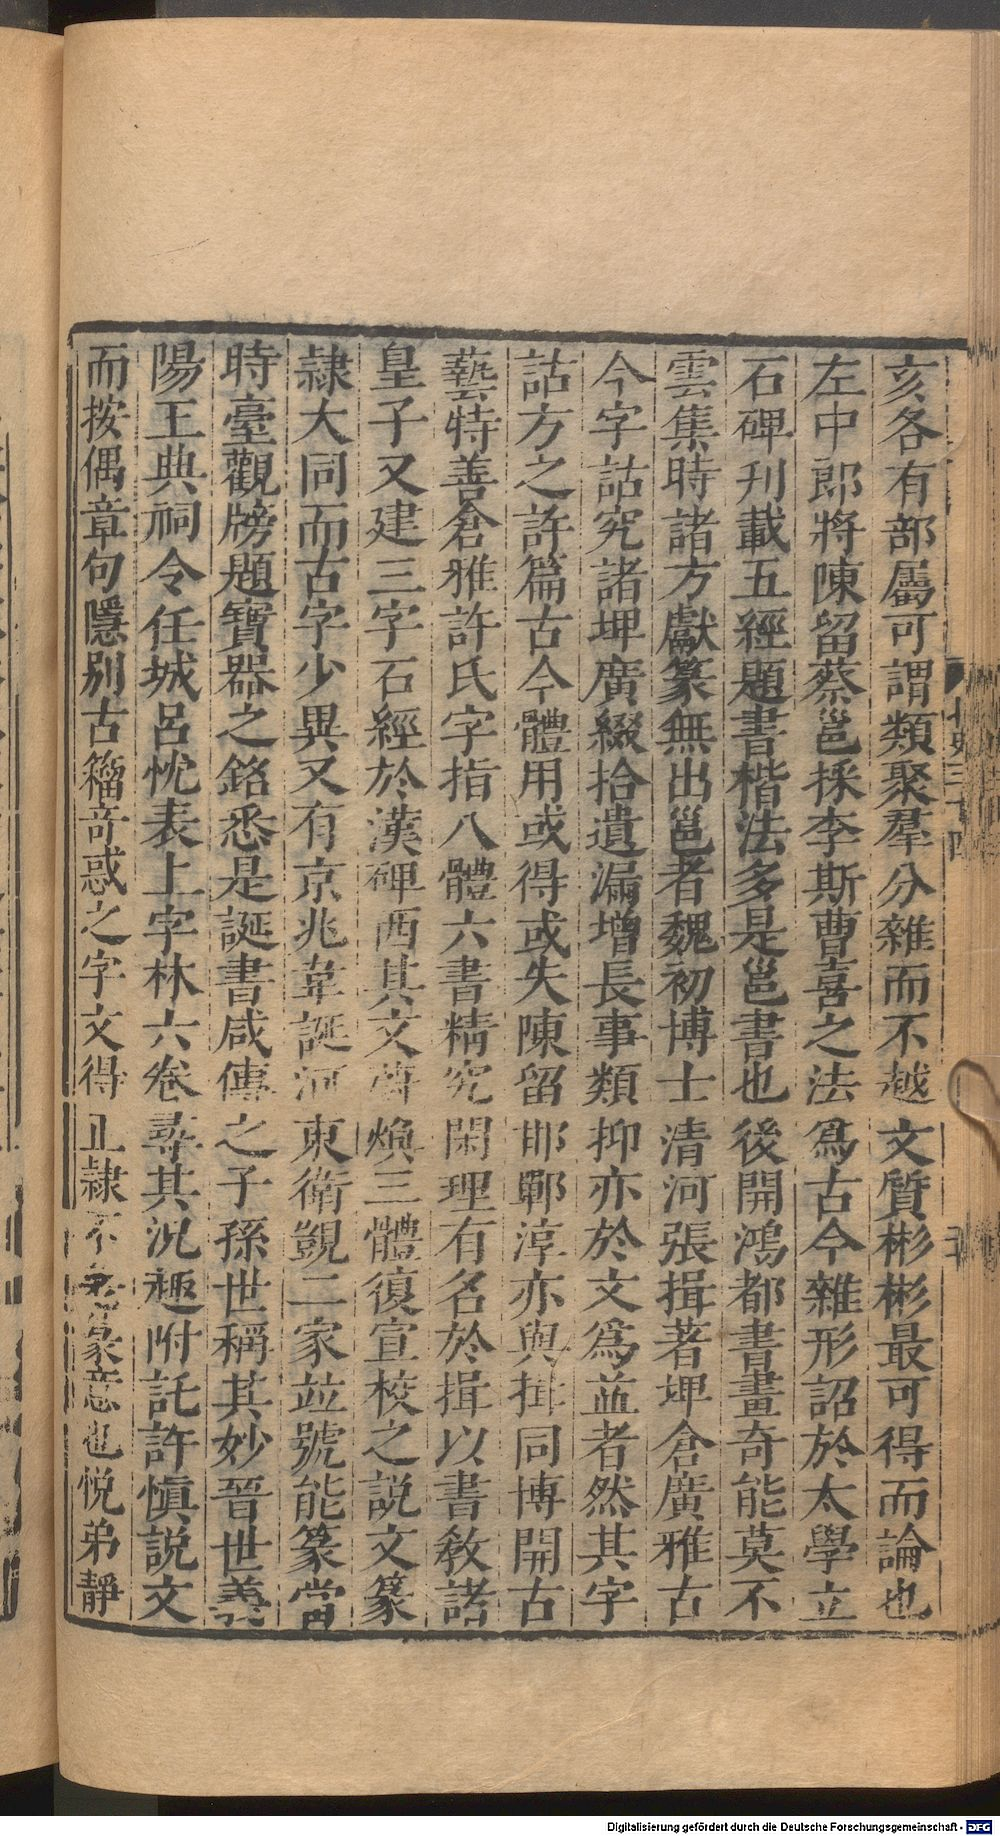 亥各有部屬可謂類聚羣分雜而不越文質彬彬最可得而論也
左中郎將陳留蔡邕採李斯曹喜之法爲古今雜形詔於太學立
石碑刊載五經題書楷法多是邕書也後開鴻都書畫奇能莫不
雲集時諸方獻篆無出邕者魏初博士清河張揖著埤倉廣雅古
今字詁究諸埤廣綴拾遺漏增長事類抑亦於文爲益者然其字
詁方之許篇古今體用或得或失陳留邯鄲淳亦與揖同博開古
藝特善倉雅許氏字指八體六書精究閑理有名於揖以書敎諸
皇子又建三字石經於漢碑西其文蔚煥三體復宣校之説文篆
隷大同而古字少異又有京兆韋誕河東衛覬二家並號能篆當
時臺觀牓題寶器之銘悉是誕書咸傳之子孫世稱其妙晉世義
陽王典祠令任城呂忱表上字林六卷尋其況趣附託許愼説文
而按偶章句隱别古籀竒惑之字文得正隷不差篆意也悦弟靜
Digitalisierung gefördert durch die Deutsche Forschungsgemeinschaft - DFG